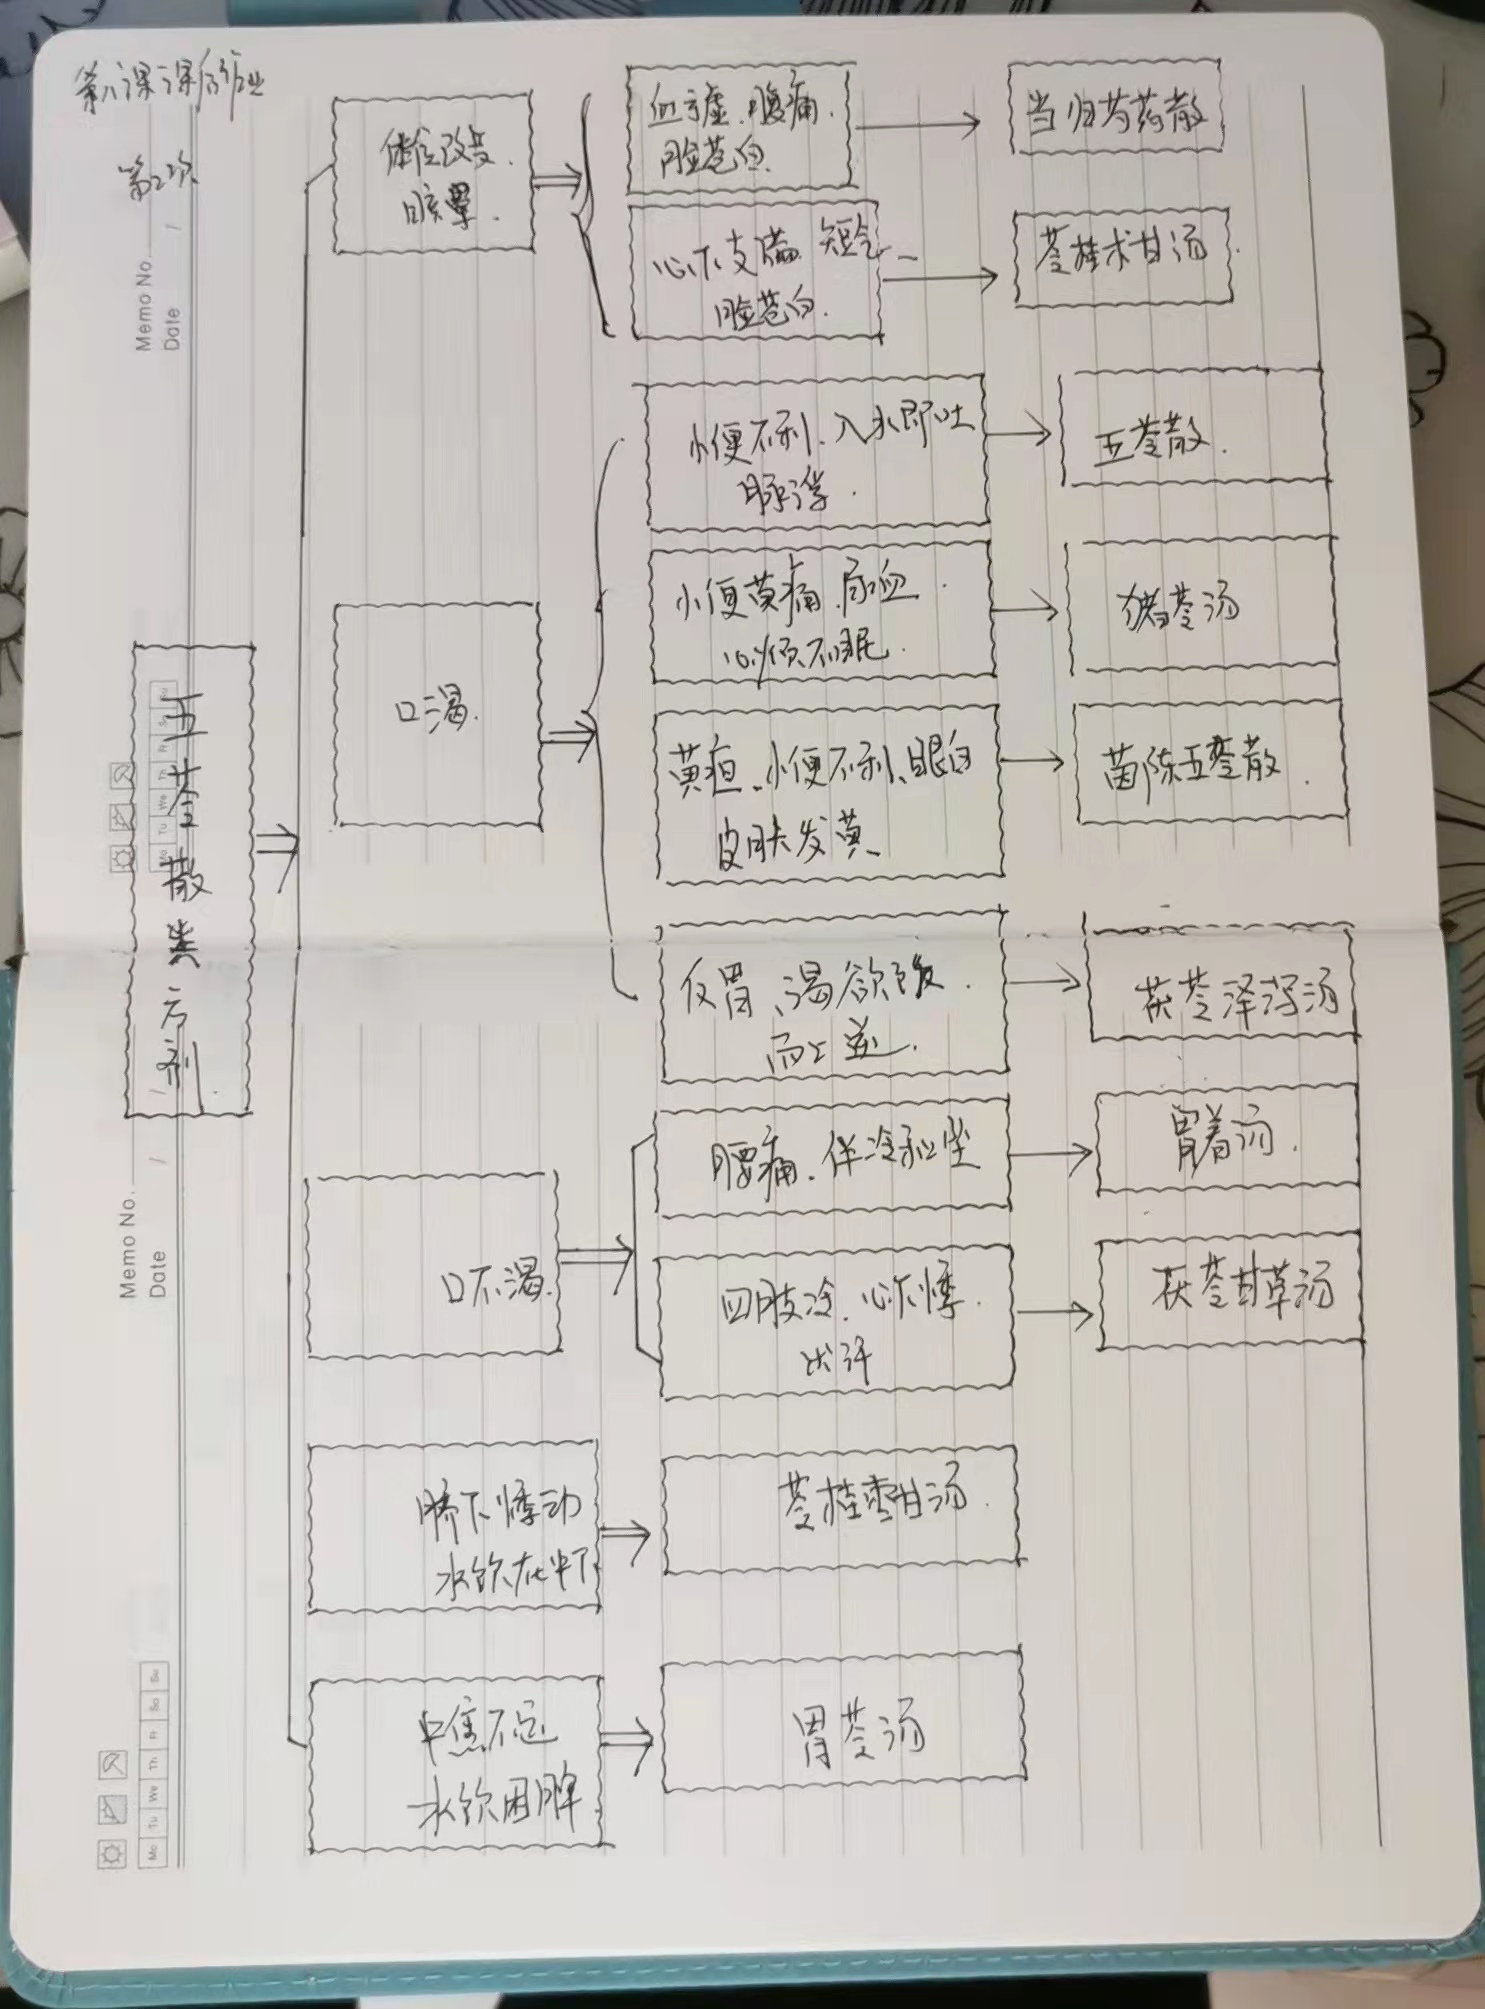 第八课课后作业
第2次
Memo No.
Date /
五苓散类方剂
体位改变.
眩晕.
血虚.腹痛.
脸苍白.
当归芍药散
心下支满 短气
脸苍白.
苓桂术甘汤.
口渴.
小便不利.入水即吐
脉浮.
五苓散.
小便黄痛.尿血.
心烦不眠.
猪苓汤
黄疸、小便不利、眼白
皮肤发黄
茵陈五苓散.
反胃、渴欲饮.
而上逆.
茯苓泽泻汤
口不渴.
腰痛.伴冷和坐
胃着汤.
四肢冷.心下悸.
伏汗
茯苓甘草汤
脐下悸动
水饮在中下
苓桂枣甘汤.
中焦不运
水饮困脾
胃苓汤
Memo No.
Date /
Mo Tu We Th Fr Sa Su
Mo Tu We Th Fr Sa Su